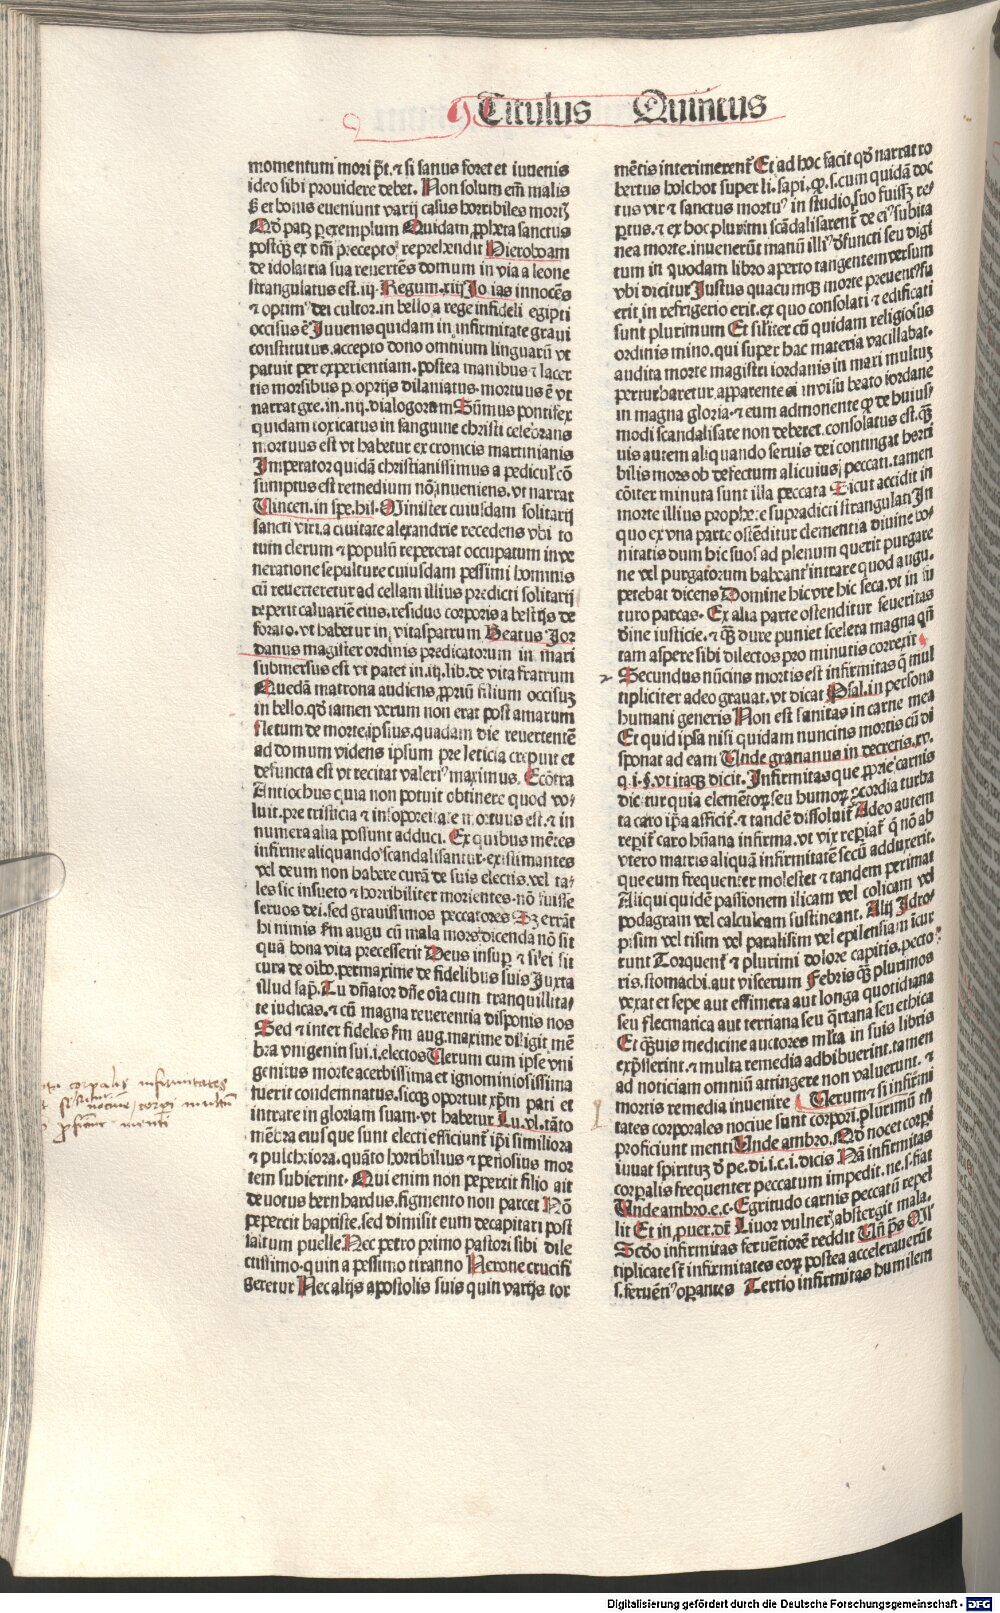 Titulus Quintus
momentum mori pt̄. ⁊ si sanus foret et iuuenis
ideo sibi prouidere debet. Non solum em̄ malis
sꝫ et bonis eueniunt varij casus horribiles mortꝭ
Qd̓ patꝫ per exemplum Quidam ꝓpheta sanctus
postqꝫ ex dn̄i precepto reprehendit Hieroboam
de idolatria sua reuertēs domum in via a leone
strangulatus est. iij. Regum. xiij Jo ias innocēs
⁊ optimꝰ dei cultor. in bello a rege infideli egipti
occisus ē Juuenis quidam in infirmitate graui
constitutus. accepto dono omnium linguarū vt
patuit per experientiam. postea manibus ⁊ lacer
tis morsibus proprijs dilaniatus. mortuus ē vt
narrat gre. in. iiij. dialogorum Sūmus pontifex
quidam toxicatus in sanguine christi celebrans
mortuus est vt habetur ex cronicis martinianis
Imperator quidā christianissimus a pediculꝭ cō
sumptus est remedium nō inueniens. vt narrat
Vincen. in spe. his. Minister cuiusdam solitarij
sancti viri. a ciuitate alexandrie recedens vbi to
tum clerum ⁊ populū repererat occupatum in ve
neratione sepulture cuiusdam pessimi hominis
cū reuerteretur ad cellam illius predicti solitarij
reperit caluariē eius. residuo corporis a bestijs de
forato. vt habetur in vitaspatrum Beatus Jor
danus magister ordinis predicatorum in mari
submersus est vt patet in. iiij. lib. de vita fratrum
Quedā matrona audiens ꝓprīū filium occisuꝫ
in bello. qd̓ tamen verum non erat post amarum
fletum de morte ipsius. quadam die reuertentē
ad domum videns ipsum pre leticia crepuit et
defuncta est vt recitat valeriꝰ maximus. Ecōtra
Antiochus quia non potuit obtinere quod vo⸗
luit. pre tristicia ⁊ in soporeitate mortuus est. ⁊ in
numera alia possunt adduci. Ex quibus mētes
infirme aliquando scandalisantur. existimantes
vel deum non habere curā de suis electis. vel ta⸗
les sic insueto ⁊ horribiliter morientes. nō fuisse
seruos dei. sed grauissimos peccatores Sꝫ errāt
hi nimis s̓m augu cū mala mors dicenda nō sit
quā bona vita precesserit Deus insuꝑ ⁊ si ei sit
cura de oībꝰ. permaxime de fidelibus suis Juxta
illud sap̄. Tu dn̄ator dn̄e oīa cum tranquillita⸗
te iudicas. ⁊ cū magna reuerentia disponis nos
Sed ⁊ inter fideles s̓m aug. maxime diligit mē
bra vnigeniti sui. i. electos Verum cum ipse vni
genitus morte acerbissima et ignominiosissima
fuerit condemnatus. sicqꝫ oportuit xp̄m pati et
intrate in gloriam suam. vt habetur Lu. vl. tāto
mēbra eius que sunt electi efficiunt̄ ip̄i similiora
⁊ pulchriora. quāto horribilius ⁊ penosius mor
tem subierint. Qui enim non pepercit filio ait
deuotus bernhardus. figmento non parcet Nō
pepercit baptiste. sed dimisit eum decapitari post
saltum puelle Nec petro primo pastori sibi dile
ctissimo. quin a pessimo tiranno Nerone crucifi
geretur Nec alijs apostolis suis quin varijs tor
mētis interimerent̄ Et ad hoc facit qd̓ narrat ro
bertus holchot super li. sapi. ꝙ. s. cum quidā doc
tus vir ⁊ sanctus mortuꝰ in studio suo fuissꝫ re⸗
pertus. ⁊ ex hoc plurimi scādalisarent̄ de eiꝰ subita
nea morte. inuenerūt manū illiꝰ defuncti seu digi
tum in quodam libro aperto tangentem versum
vbi dicitur Justus quacūmqꝫ morte preuentꝰ fu
erit. in refrigerio erit. ex quo consolati ⁊ edificati
sunt plurimum Et siliter cū quidam religiosus
ordinis mino. qui super hac materia vacillabat.
audita morte magistri iordanis in mari multuꝫ
perturbaretur. apparente ei in visu beato iordane
in magna gloria. ⁊ eum admonente ꝙ de huius⸗
modi scandalisare non deberet. consolatus est. qꝫ
uis autem aliquando seruis dei contingat horri
bilis mors ob defectum alicuius peccati. tamen
cōiter minuta sunt illa peccata Sicut accidit in
morte illius prophete supradicti strangulati In
quo ex vna parte ostēditur clementia diuine bo⸗
nitatis dum hic suos ad plenum querit purgare
ne vel purgatorium habeant intrare quod augu.
petebat dicens Domine hic vre hic seca. vt in fu
turo parcas. Ex alia parte ostenditur seueritas
diuine iusticie. ⁊ qꝫ dure puniet scelera magna qn̄
tam aspere sibi dilectos pro minutis correxit
Secundus nūcius mortis est infirmitas q̄ mul
tipliciter adeo grauat. vt dicat Psal. in persona
humani generis Non est sanitas in carne mea
Et quid ipsa nisi quidam nuncius mortis cū di
sponat ad eam Unde gratianus in decretis. xv.
q. i. §. vt itaqꝫ dicit. Infirmitasque ꝓprie carnis
dicitur quia elemētoꝝ seu humoꝝ ꝯcordia turba
ta caro ip̄a afficit̄. ⁊ tandē dissoluit̄ Adeo autem
repit̄ caro hūana infirma. vt vix reperiat̄ q̄ nō ab
vtero matris aliquā infirmitatē secū adduxerit.
que eum frequenter molestet ⁊ tandem perimat
Aliqui quidē passionem ilicam vel colicam vel
podagram vel calculeam sustineant. Alij Idro⸗
pisim vel tisim vel paralisim vel epilensiam īcur
runt Torquent̄ ⁊ plurimi dolore capitis. pecto⸗
ris. stomachi. aut viscerum Febris qꝫ plurimos
vexat et sepe aut effimera aut longa quotidiana
seu flecmatica aut tertiana seu qͣrtana seu ethica
Et qꝫuis medicine auctores mĺta in suis libris
exp̄sserint. ⁊ multa remedia adhibuerint. tamen
ad noticiam omniū attingere non valuerunt. ⁊
mortis remedia inuenire Verum ⁊ si infirmi
tates corporales nociue sunt corpori. plurimū tn̄
proficiunt menti Unde ambro. Qd̓ nocet corpi
iuuat spirituꝫ d̓ pe. di. i. c. i. dicis Nā infirmitas
corꝑalis frequenter peccatum impedit. ne. s. fiat
Unde ambro. e. c. Egritudo carnis peccatū repel
lit Et in ꝓuer. dr̄ Liuor vulnerꝭ abstergit mala.
Scdo infirmitas feruētiorē reddit Un̄ ps̄ Ml̓
tiplicate st̄ infirmitates eoꝝ postea accelerauerūt
s. feruētiꝰ oꝑantes Tertio infirmitas humilem
corporalis infirmitates
nociue corpori multum
proficiunt menti
Digitalisierung gefördert durch die Deutsche Forschungsgemeinschaft - DFG